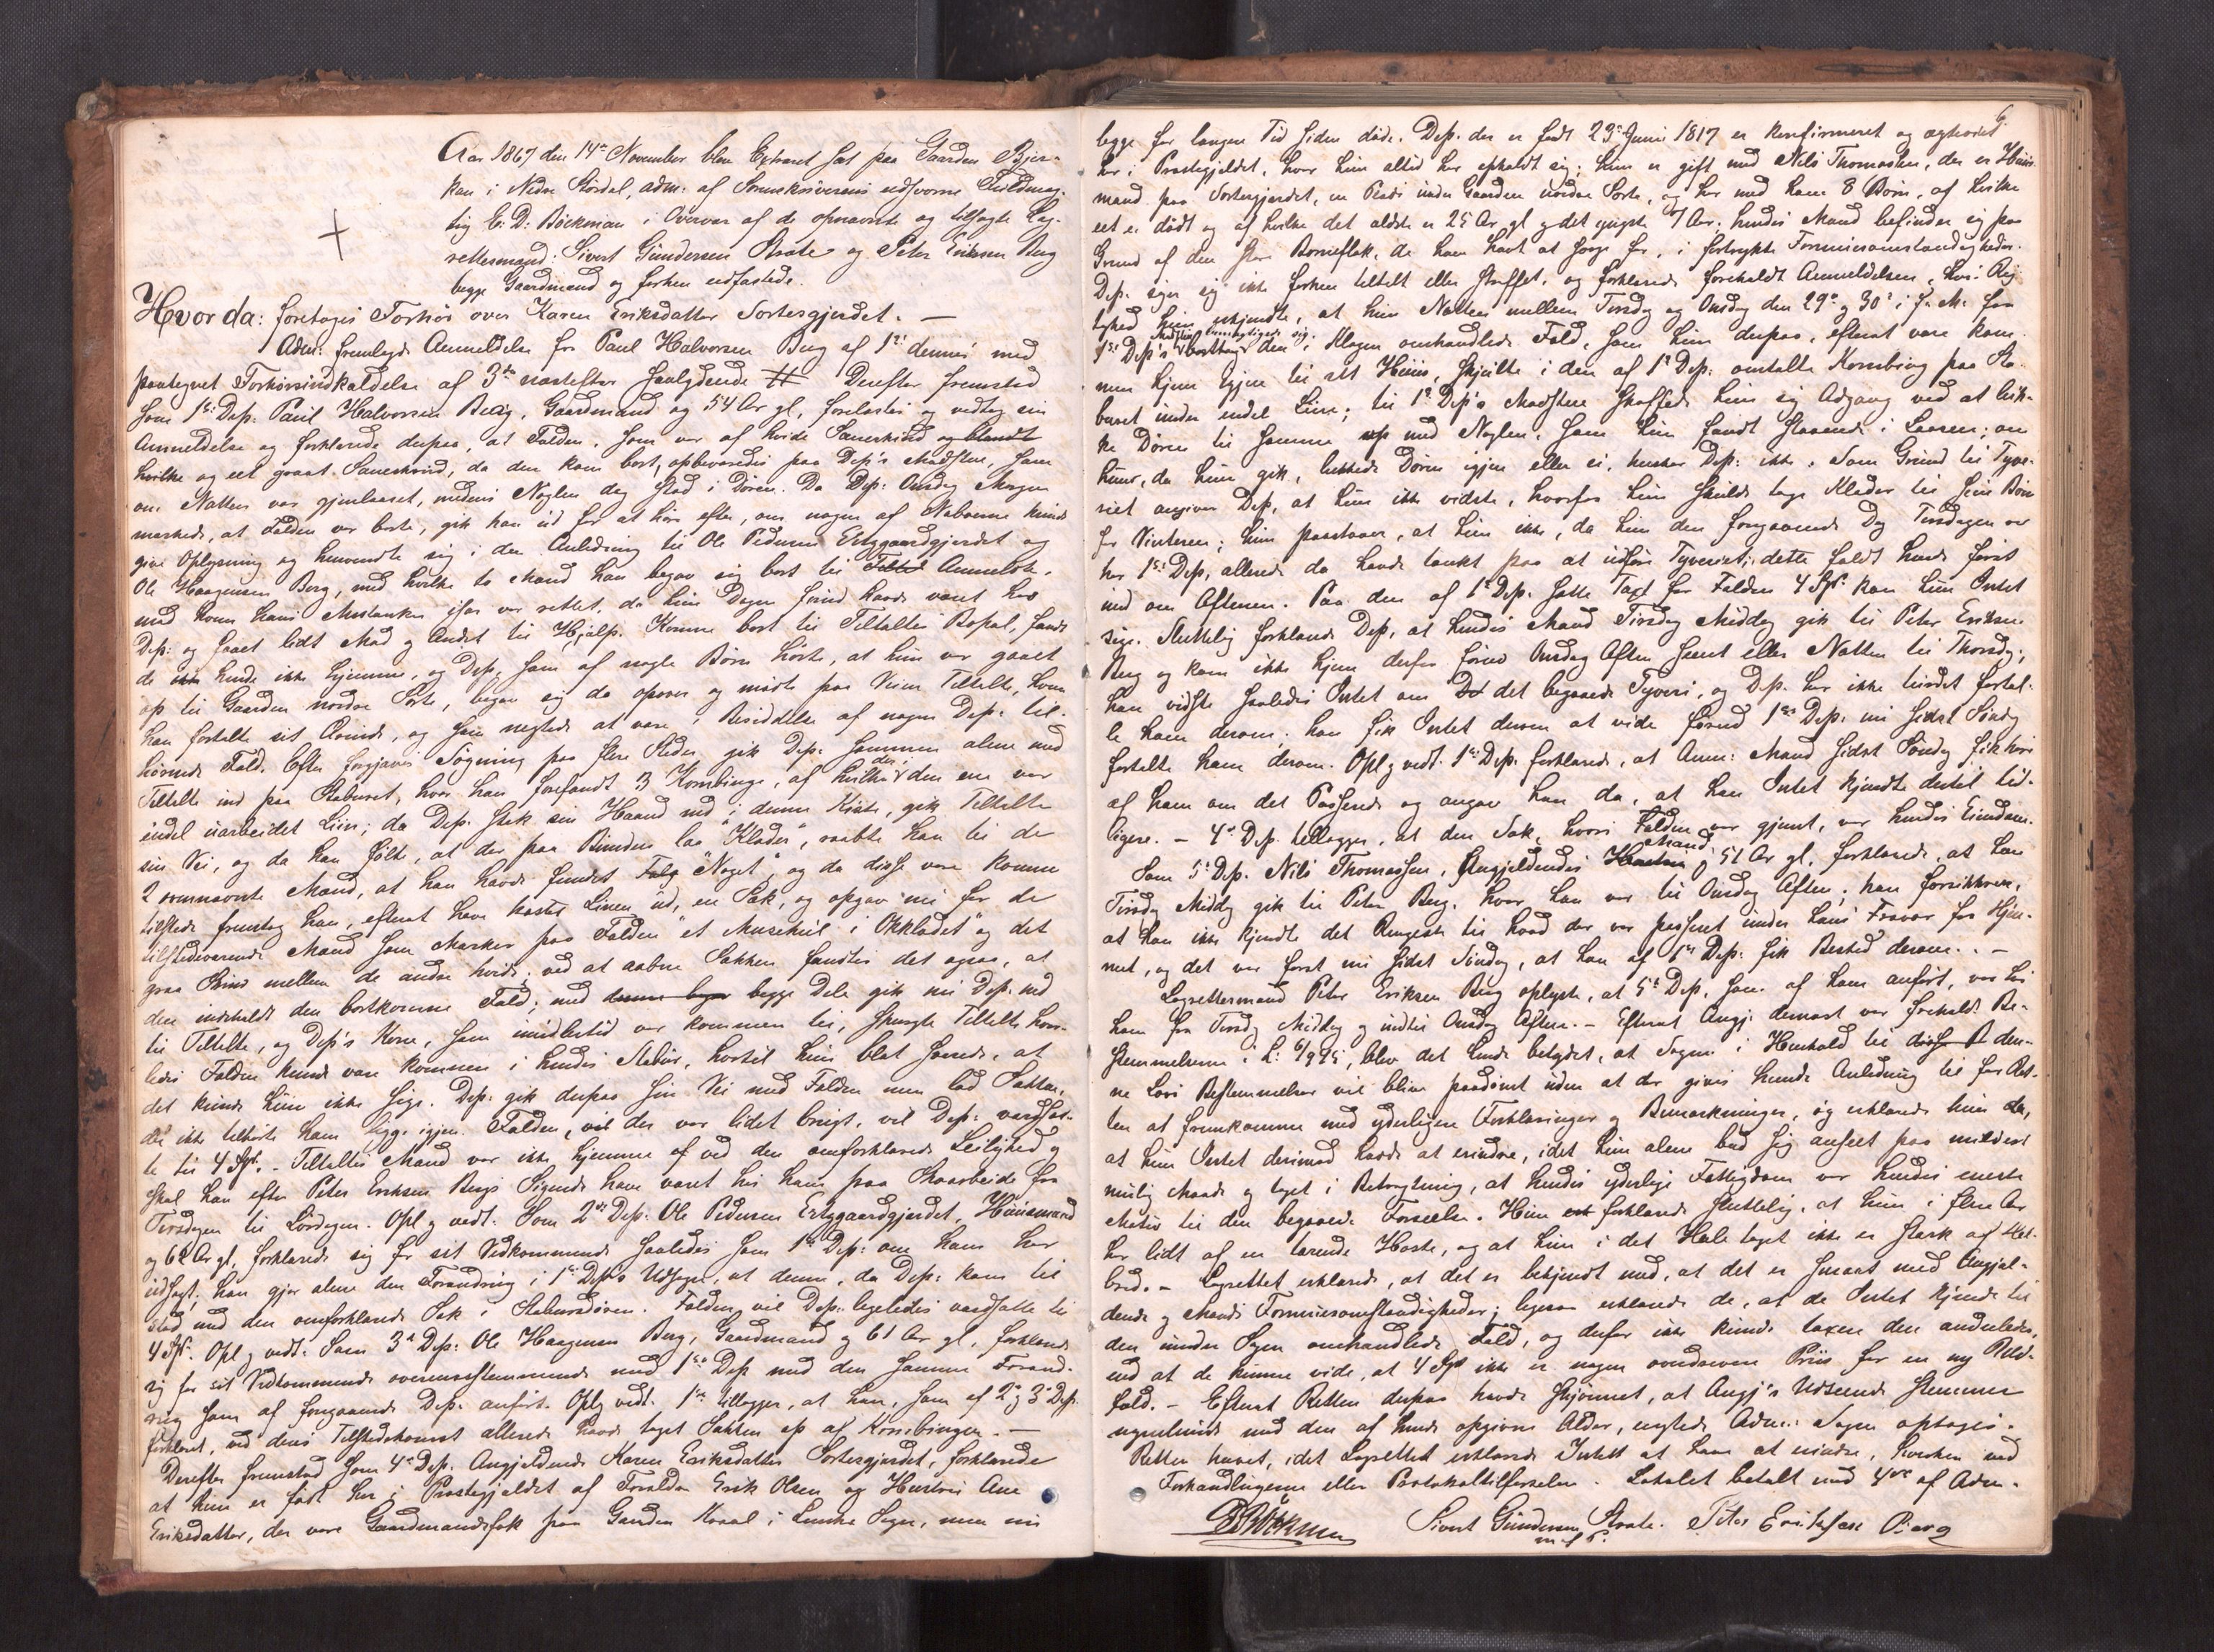 Aar 1867 den 14de November blev Extraret sat paa Gaarden Bjer-
kan i Nedre Stördal, adm: af Sorenskriverens edsvorne Fuldmæg-
tig C. D: Böckman i Overvær af de opnævnte og tilsagte Lag-
rettesmænd: Sivert Gundersen Aksate og Peter Eriksen Berg
begge Gaardmænd og forhen edfæstede.
Hvor da: foretoges Forhör over Karen Eriksdatter Sortergjerdet. —
Adm: fremlagde Anmeldelse fra Paul Halvorsen Berg af 1ste dennes med
paategnet Forhörsindkaldelse af 3die næstefter saalydende # Derefter fremstod
som 1ste Dep: Paul Halvorsen Berg, Gaardmand og 54 Aar gl, forelæstes og vedtog sin
Anmeldelse og forklarede derpaa, at Falden, som var af hvide Saueskind og blandt
hvilke og eet graat Saueskind, da den kom bort, opbevaredes paa Dep's Madstue, som
om Natten var gjenlaaset, medens Nöglen dog stod i Dören. Da Dep: Onsdag Morgen
mærkede, at Falden var borte, gik han ud for at höre efter, om nogen af Naboerne kunde
give Oplysning og henvendte sig i den Anledning til Ole Pedersen Ertzgaardgjerdet og
Ole Haagensen Berg, med hvilke to Mænd han begav sig bort til Anmeldte,
mod hvem hans Mistanke især var rettet, da hun Dagen forud havde været hos
Dep: og faaet lidt Mad og Andet til Hjælp. Komne bort til Tiltaltes Bopæl, fandt
de hende ikke hjemme, og Dep, som af nogle Börn hörte, at hun var gaaet
op til Gaarden nordre Sorte, begav sig da opover og mödte paa Veien Tiltalte, hvem
han fortalte sit Ærinde, og som negtede at være i Besiddelse af nogen Dep: til-
hörende Fald. Efter forgjæves Sögning paa flere Steder gik Dep: sammen alene med
Tiltalte ind paa Staburet, hvor han forefandt 3 Kornbinger, af hvilke der i den ene var
endel uarbeidet Liin; da Dep: stak sin Haand ned i denne Kiste, gik Tiltalte
sin Vei, og da han fölte, at der paa Bunden laa "Klæder", raabte han til de
2 ovennævnte Mænd, at han havde fundet "Noget", og da disse vare komne
tilstede fremtog han, efterat have kastet Linen ud, en Sæk, og opgav nu for de
tilstedeværende Mænd som Mærker paa Falden "et Musehul i Okkladet" og det
graa Skind mellem de andre hvide; ved at aabne Sækken fandtes det ogsaa, at
den indeholdt den bortkomne Fald; med begge Dele gik nu Dep: ned
til Tiltalte, og Dep's Kone, som imidlertid var kommen til, spurgte Tiltalte hvor-
ledes Falden kunde være kommen i hendes Stabur, hvortil hun blot svarede, at
det kunde hun ikke sige. Dep: gik derpaa sin Vei med Falden men lod Sækken,
der ikke tilhörte ham ligge igjen. Falden, der var lidet brugt, vil Dep: værdsæt-
te til 4 Spd. - Tiltaltes Mand var ikke hjemme ved den omforklarede Leilighed og
skal han efter Peter Eriksen Bergs Sigende have været hos ham paa Skoarbeide fra
Tirsdagen til Lördagen. Opl og vedt: Som 2den Dep: Ole Pedersen Ertzgaardgjerdet, Huusmand
og 62 Aar gl, forklarede sig for sit Vedkommende saaledes som 1ste Dep: om ham har
udsagt; han gjör alene den Forandring i 1ste Dep's Udsagn, at denne, da Dep: kom til
stod med den omforklarede Sæk i Staburdören. Falden vil Dep: ligeledes værdsætte til
4 Spd. Opl og vedt: Som 3die Dep: Ole Haagensen Berg, Gaardmand og 61 Aar gl, forklarede
sig for sit Vedkommende overensstemmende med 1ste Dep med den samme Forand-
ring som af foregaaende Dep: anfört. Opl og vedt. 1ste tillægger, at han, som af 2den og 3die Dep.
forklaret, ved deres Tilstedekomst allerede havde taget Sækken op af Kornbingen. —
Derefter fremstod som 4de Dep. Angjældende Karen Eriksdatter Sortergjerdet, forklarede
at hun er födt her i Præstegjældet af Forældre Erik Olsen og Hustrue Ane
Eriksdatter, der vare Gaardmandsfolk paa Gaarden i Sogn, men nu
6
begge for længere Tid siden döde. Dep. der er födt 23de Juni 1817 er konfirmeret og ægteviet
her i Præstegjeldet, hvor hun altid har opholdt sig; hun er gift med Nils Thomassen, der er Huus-
mand paa Sortergjerdet, en Plads under Gaarden nordre Sorte, og har med ham 8 Börn, af hvilke
eet er dödt og af hvilke det ældste er 25 Aar gl og det yngste 7 Aar. hendes Mand befinder sig paa
Grund af den store Börneflok, de have havt at sörge for, i fortrykte Formuesomstændigheder.
Dep. siger sig ikke forhen tiltalt eller straffet, og forklarede foreholdt Anmeldelsen, hvis Rig-
tighed hun erkjendte, at hun Natten mellem Tirsdag og Onsdag den 29de og 30te i f. M. fra
1ste Dep's Madstue bemægtigede sig den i Klagen omhandlede Fald, som hun derpaa, efterat være kom-
men hjem igjen til sit Huus, skjulte i den af 1ste Dep: omtalte Kornbing paa Sta-
buret under endel Liin; til 1ste Dep's Madstue skaffede hun sig Adgang ved at luk-
ke Dören til samme op med Nöglen, som hun fandt staaende i Laasen; om
hun, da hun gik, lukkede Dören igjen eller ei, husker Dep: ikke. Som Grund til Tyve-
riet angiver Dep, at hun ikke vidste, hvorfra hun skulde tage Klæder til sine Börn
for Vinteren; hun paastaaer, at hun ikke, da hun den foregaaende Dag Tirsdagen var
hos 1ste Dep, allerede da havde tænkt paa at udföre Tyveriet; dette faldt hende först
ind om Aftenen. Paa den af 1ste Dep. satte Taxt for Falden 4 Spd kan hun Intet
sige. Sluttelig forklarede Dep, at hendes Mand Tirsdag Middag gik til Peter Eriksen
Berg og kom ikke hjem derfra förend Onsdag Aften seent eller Natten til Thorsdag;
han vidste saaledes Intet om det begaaede Tyveri, og Dep. har ikke turdet fortæl-
le ham derom; han fik Intet derom at vide förend 1ste Dep. nu sidst Söndag
fortalte ham derom. Opl og vedt. 1ste Dep. forklarede, at Anm: Mand sidst Söndag fik höre
af ham om det Passerede og angav han da, at han Intet kjendte dertil tid-
ligere. — 4de Dep. tillægger, at den Sæk, hvori Falden var gjemt, var hendes Eiendom.
Som 5te Dep. Nils Thomassen, Angjeldendes Mand, 51 Aar gl, forklarede, at han
Tirsdag Middag gik til Peter Berg, hvor han var til Onsdag Aften; han forsikkrer,
at han ikke kjendte det Ringeste til hvad der var passeret under hans Fravær fra Hjem-
met, og det var först nu sidst Söndag, at han af 1ste Dep: fik Besked derom. —
Lagrettesmand Peter Eriksen Berg oplyste, at 5te Dep, som af ham anfört, var hos
ham fra Tirsdag Middag og indtil Onsdag Aften. — Efterat Angj: dernæst var foreholdt Be-
stemmelserne i L: 6/9 75, blev det hende betydet, at Sagen i Henhold til den-
ne Lovs Bestemmelser vil blive paadömt uden at der gives hende Anledning til for Ret-
ten at fremkomme med yderligere Forklaringer og Bemærkninger, og erklærede hun da,
at hun Intet derimod havde at erindre, idet hun alene bad sig anseet paa mildest
mulig Maade og taget i Betragtning, at hendes yderlige Fattigdom var hendes eneste
Motiv til den begaaede Forseelse. Hun forklarede sluttelig, at hun i flere Aar
har lidt af en tærende Hoste, og at hun i det Hele taget ikke er stærk af Hel-
bred. — Lagrettet erklærede, at det er bekjendt med, at det er smaat med Angjæl-
dende og Mands Formuesomstændigheder; ligesom erklærede de, at de Intet kjende til
den under Sagen omhandlede Fald, og derfor ikke kunde taxere den anderledes,
end at de kunne vide, at 4 Spd ikke er nogen overdreven Priis for en ny Skind-
fald. — Efterat Retten derpaa havde skjönnet, at Angj's Udseende stemmer
nogenlunde med den af hende opgivne Alder, begjærede Adm: Sagen optaget.
Retten hævet, idet Lagrettet erklærede Intet at have at erindre, hverken ved
Forhandlingerne eller Protokoltilförselen. Lokalet betalt med 4 af Adm.
CDBöckman Sivert Gundersen Aksate. Peter Eriksen Berg
m. f. P.